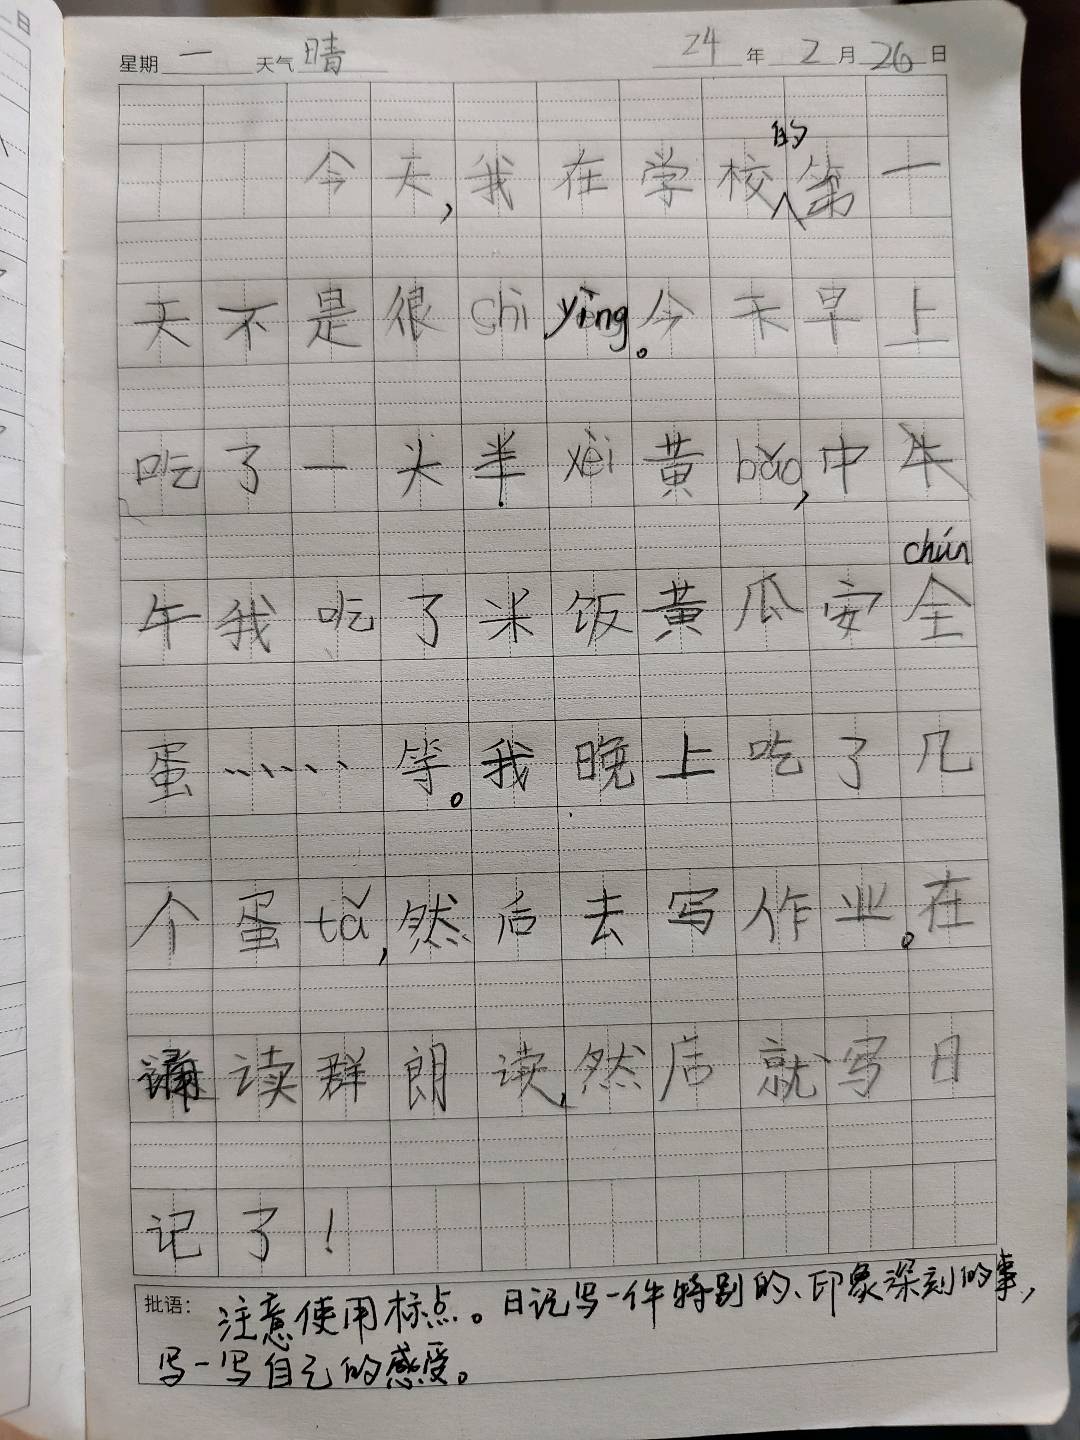 星期 一 天气 晴 24 年 2 月 26 日
的
今天,我在学校第一
天不是很chì yìng。今天早上
吃了一头半xèi黄bǎo,中牛
chún
午我吃了米饭黄瓜安全
蛋……等。我晚上吃了几
个蛋tǎ,然后去写作业。在
诵读群朗读,然后就写日
记了!
批语: 注意使用标点。日记写一件特别的、印象深刻的事,
写一写自己的感受。